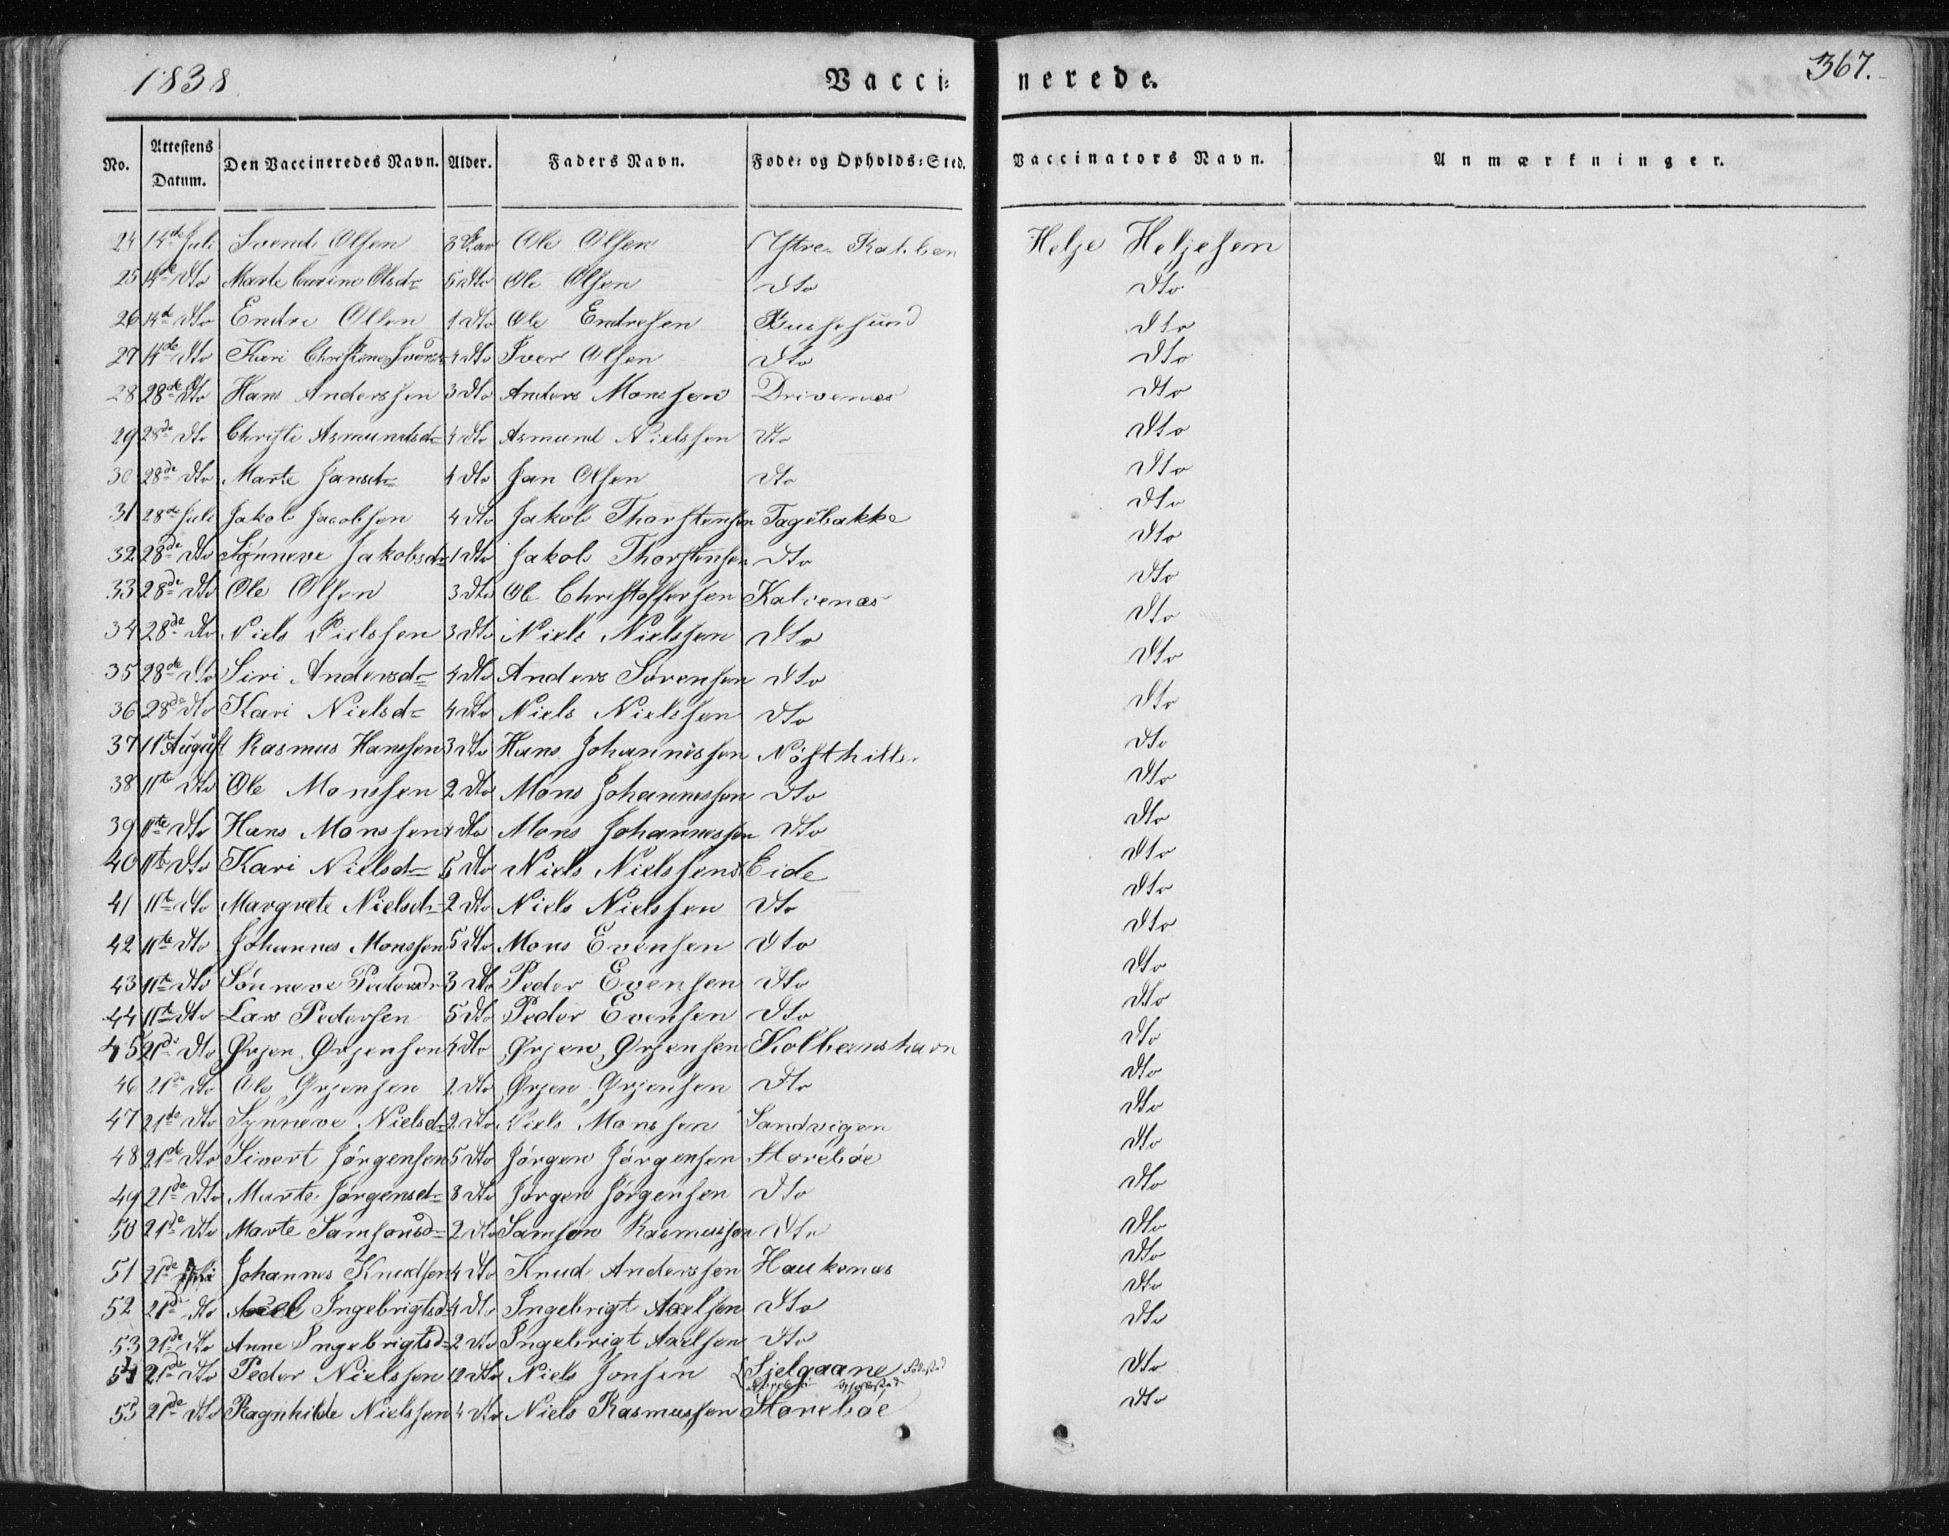 1838
Vaccinerede.
367.
No. Attestens Datum. Den Vaccineredes Navn. Alder. Faders Navn. Føde- og Opholds-Sted. Vaccinators Navn. Anmærkninger.
24 14de Juli Svend Olsen 3 Aar Ole Olsen Ystre Helje Heljesen
25 14de dto Marte Carine Olsdr 5 dto Ole Olsen dto dto
26 14de dto Endre Olsen 1 dto Ole Endresen dto
27 14de dto Kari Christense 4 dto Iver Olsen dto dto
28 28de dto Hans Anderssen 3 dto Anders Monssen Drivenes dto
29 28de dto Christi Asmundsdr 4 dto Asmund Nielssen dto dto
30 28de dto Marte Jansdr 4 dto Jan Olsen dto dto
31 28de Juli Jakob Jacobsen 4 dto Jakob Thorstensen Tagebakke dto
32 28de dto Synneve Jakobsdr 1 dto Jakob Thorstensen dto dto
33 28de dto Ole Olsen 3 dto Ole Christoffersen Kalvenæs dto
34 28de dto Niels Nielssen 3 dto Niels Nielssen dto dto
35 28de dto Siri Andersdr 4 dto Anders Sørensen dto dto
36 28de dto Kari Nielsdr 4 dto Niels Nielssen dto dto
37 11te August Rasmus Hanssen 3 dto Hans Johannessen dto
38 11te dto Ole Monssen 2 dto Mons Johannessen dto dto
39 11te dto Hans Monssen 4 dto Mons Johannessen dto dto
40 11te dto Kari Nielsdr 5 dto Niels Nielssen Eide dto
41 11te dto Margrete Nielsdr 2 dto Niels Nielssen dto dto
42 11te dto Johannes Monssen 5 dto Mons Evensen dto dto
43 11te dto Sønneve Pedersdr 3 dto Peder Evensen dto dto
44 11te dto Lars Pedersen 5 dto Peder Evensen dto dto
45 21de dto Ørjen Ørjensen 4 dto Ørjen Ørjensen Kolbeenshavn dto
46 21de dto Ole Ørjensen 2 dto Ørjen Ørjensen dto dto
47 21de dto Synneve Nielsdr 2 dto Niels Monssen Sandvigen dto
48 21de dto Sivert Jørgensen 5 dto Jørgen Jørgensen Storebøe dto
49 21de dto Marte Jørgensdr 8 dto Jørgen Jørgensen dto dto
50 21de dto Marte Samsonsdr 2 dto Samson Rasmussen dto dto
51 21de Johannes Knudsen 4 dto Knud Anderssen Haukenæs dto
52 21de dto Axel Ingebrigtsd 4 dto Ingebrigt Axelsen dto dto
53 21de dto Anne Ingebrigtsdr 2 dto Ingebrigt Axelsen dto dto
54 21de dto Peder Nielssen 12 dto Niels Jonsen Sjelgaane Fødested dto
55 21de dto Ragnhilde Nielssen 4 dto Niels Rasmussen Storebøe dto